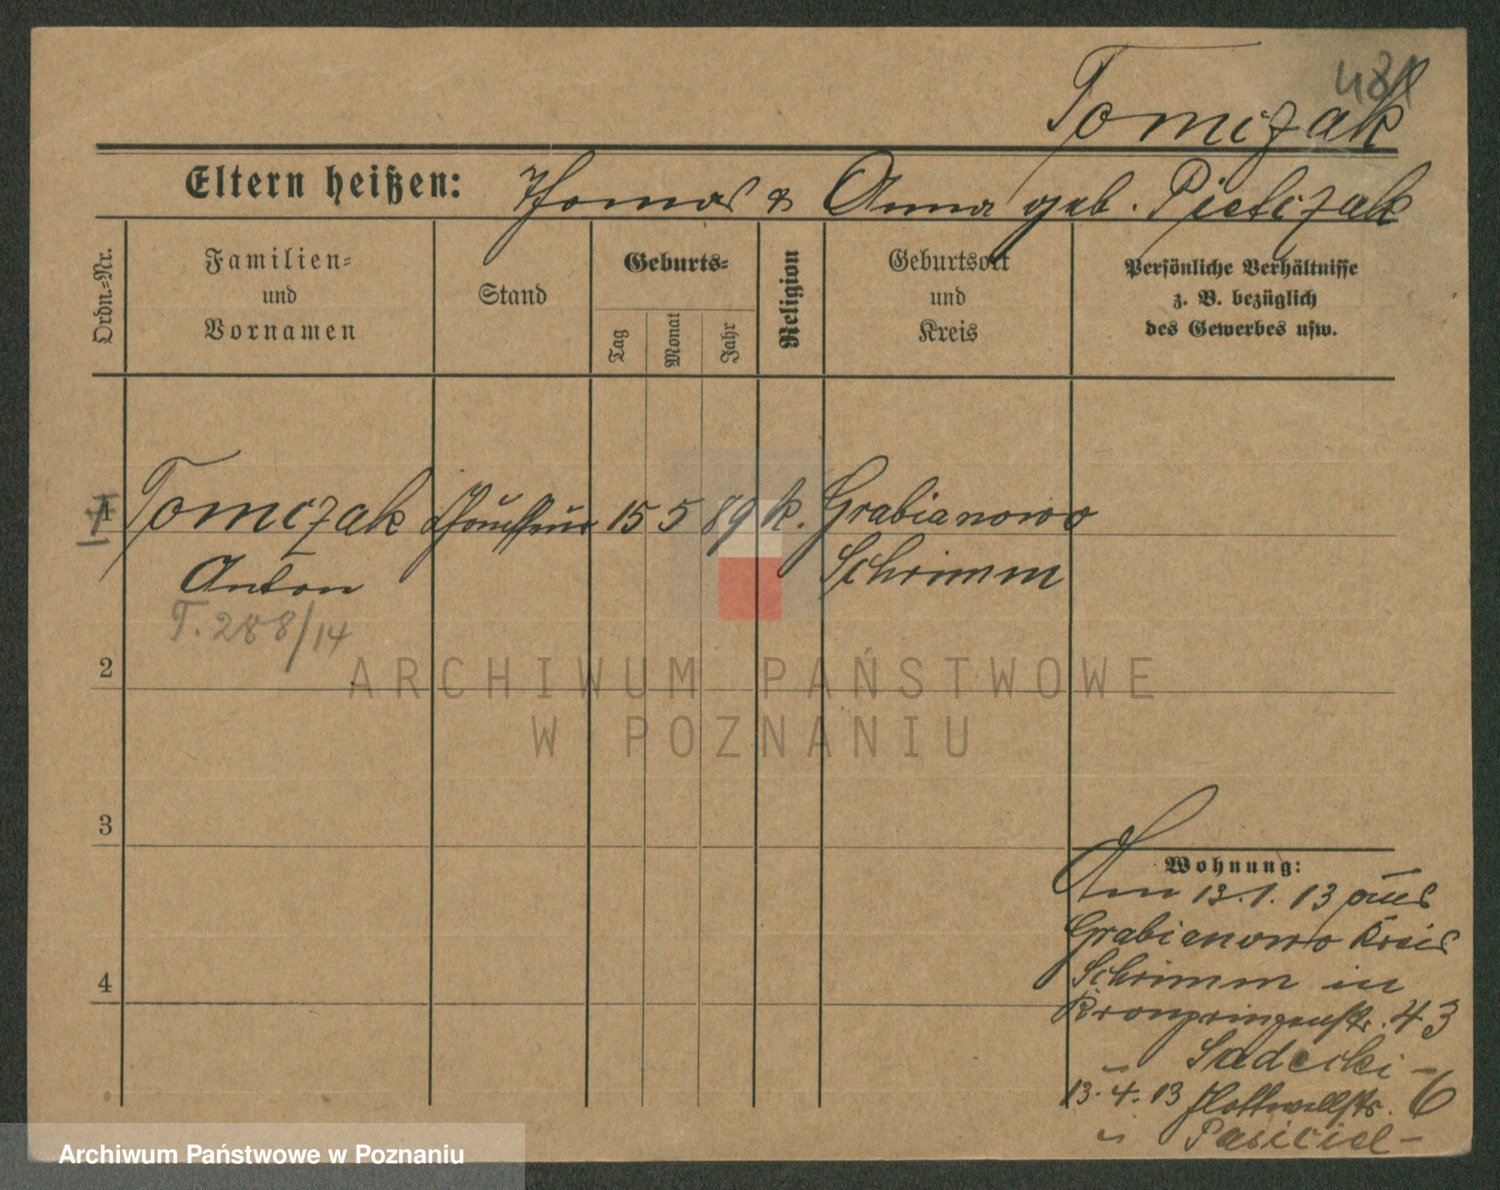 481
Tomczak
Eltern heißen: Thomas & Anna geb. Pietczak
Ordn.=Nr.
Familien=
und
Vornamen
Stand
Geburts=
Tag
Monat
Jahr
Religion
Geburtsort
und
Kreis
Persönliche Verhältnisse
z. B. bezüglich
des Gewerbes usw.
1 Tomczak 15 5 89 k. Grabianowo
Anton Schrimm
T. 288/14
2
ARCHIWUM PAŃSTWOWE
W POZNANIU
3
Wohnung:
Am 13.1.13 aus
Grabianowo Kreis
4
Schrimm in
Kronprinzenstr. 43
Sadecki -
13.4.13 Flottwellstr. 6
Archiwum Państwowe w Poznaniu